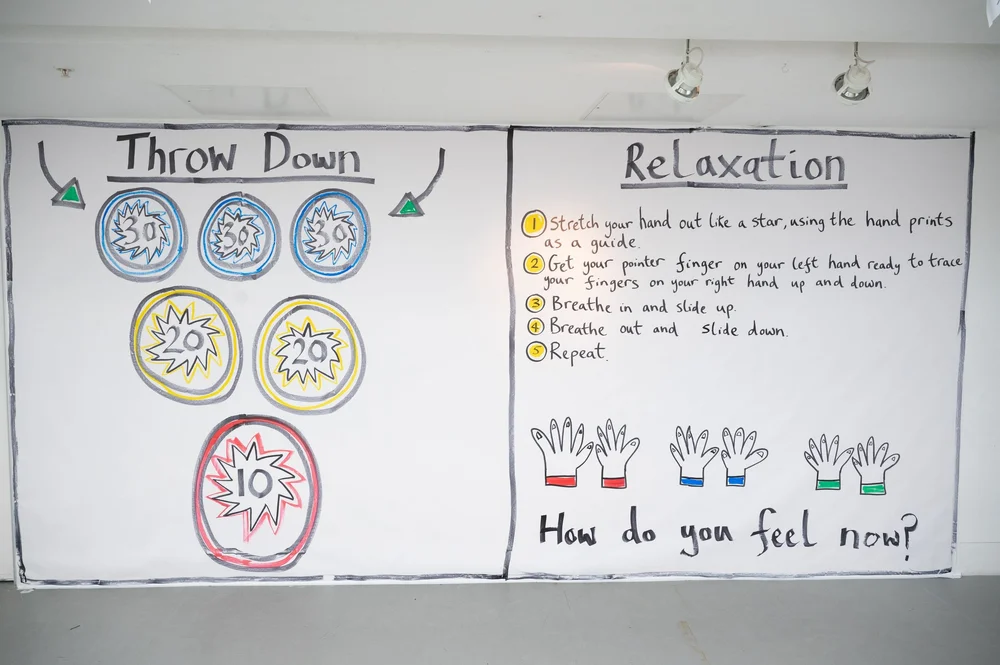 Throw Down
30 30 30
20 20
10
Relaxation
1 Stretch your hand out like a star, using the hand prints
as a guide.
2 Get your pointer finger on your left hand ready to trace
your fingers on your right hand up and down.
3 Breathe in and slide up.
4 Breathe out and slide down.
5 Repeat.
How do you feel now?